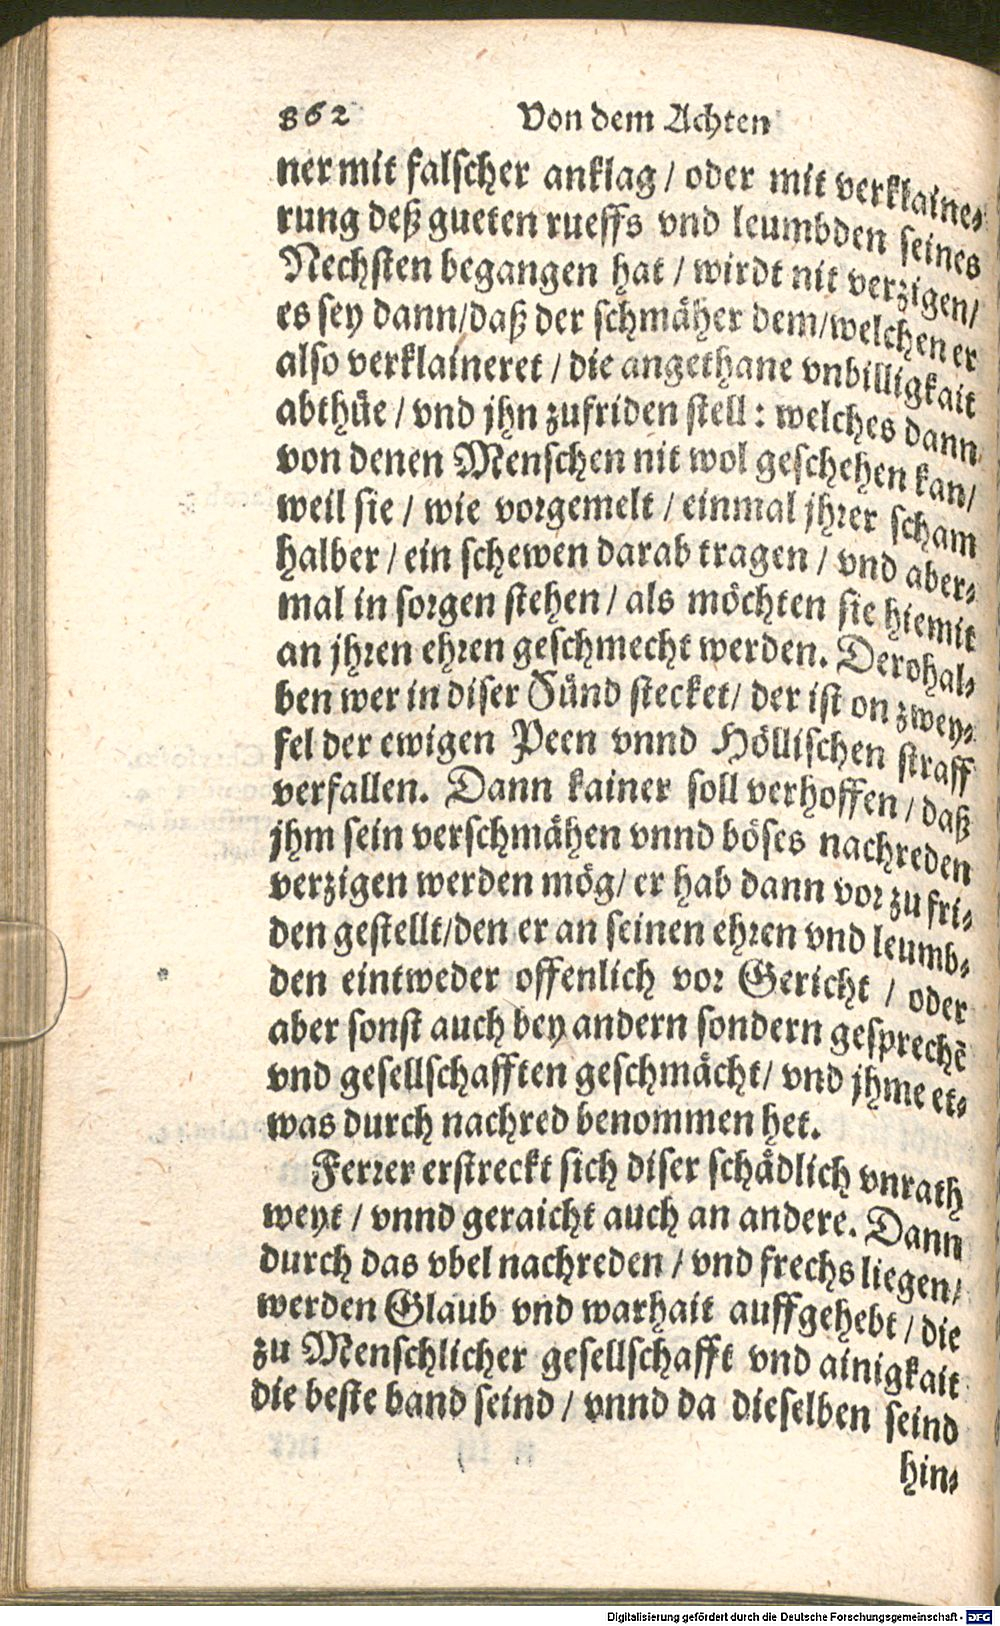 862 Von dem Achten
ner mit falscher anklag / oder mit verklaine⸗
rung deß gueten rueffs vnd leumbden seines
Nechsten begangen hat / wirdt nit verzigen /
es sey dann / daß der schmäher dem / welchen er
also verklaineret / die angethane vnbilligkait
abthüe / vnd jhn zufriden stell : welches dann
von denen Menschen nit wol geschehen kan /
weil sie / wie vorgemelt / einmal jhrer scham
halber / ein schewen darab tragen / vnd aber⸗
mal in sorgen stehen / als möchten sie hiemit
an jhren ehren geschmecht werden. Derohal⸗
ben wer in diser Sünd stecket / der ist on zwey⸗
fel der ewigen Peen vnnd Höllischen straff
verfallen. Dann kainer soll verhoffen / daß
jhm sein verschmähen vnnd böses nachreden
verzigen werden mög / er hab dann vor zu fri⸗
den gestellt / den er an seinen ehren vnd leumb⸗
den eintweder offenlich vor Gericht / oder
aber sonst auch bey andern sondern gesprechẽ
vnd gesellschafften geschmächt / vnd jhme et⸗
was durch nachred benommen het.
Ferrer erstreckt sich diser schädlich vnrath
weyt / vnnd geraicht auch an andere. Dann
durch das vbel nachreden / vnd frechs liegen /
werden Glaub vnd warhait auffgehebt / die
zu Menschlicher gesellschafft vnd ainigkait
die beste band seind / vnnd da dieselben seind
hin⸗
Digitalisierung gefördert durch die Deutsche Forschungsgemeinschaft - DFG